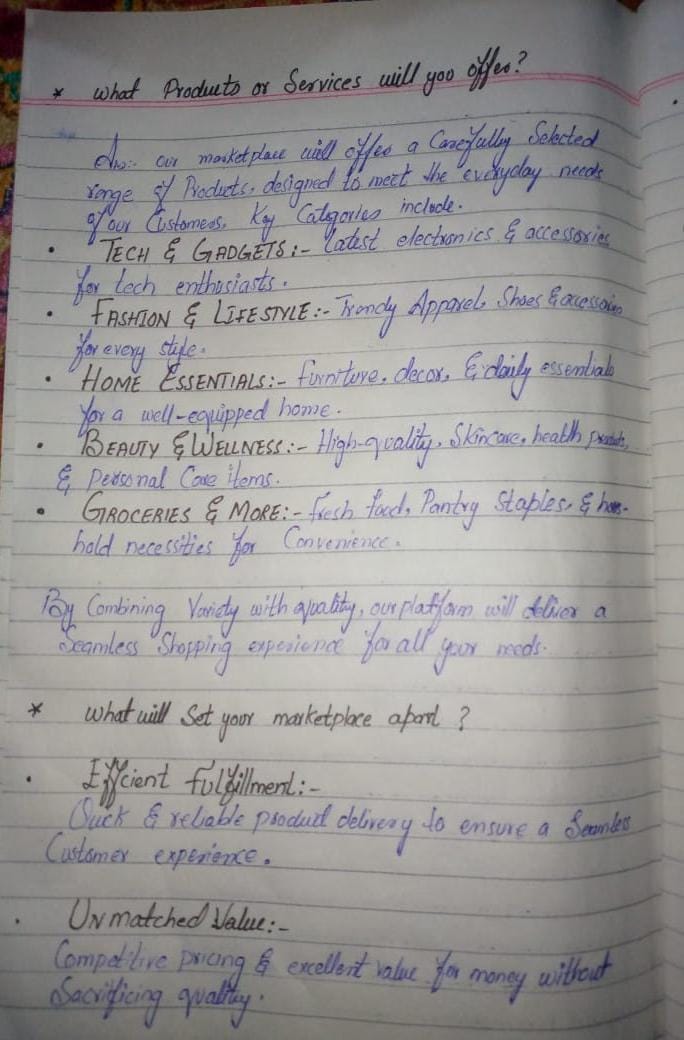 * what Products or Services will you offer?
Ans:- our marketplace will offer a Carefully Selected
range of Products, designed to meet the everyday needs
of our Customers. Key Categories include.
• TECH & GADGETS:- latest electronics & accessories
for tech enthusiasts.
• FASHION & LIFESTYLE:- Trendy Apparel, Shoes & accessories
for every style.
• HOME ESSENTIALS:- furniture, decor, & daily essentials
for a well-equipped home.
• BEAUTY & WELLNESS:- High-quality, Skincare, health products,
& Personal Care items.
• GROCERIES & MORE:- fresh food, Pantry Staples, & hous-
hold necessities for Convenience.
By Combining Variety with quality, our platform will deliver a
Seamless Shopping experience for all your needs.
* what will Set your marketplace apart ?
• Efficient fulfillment:-
Quick & reliable product delivery to ensure a Seamless
Customer experience.
• UNmatched Value:-
Competitive pricing & excellent value for money without
Sacrificing quality.